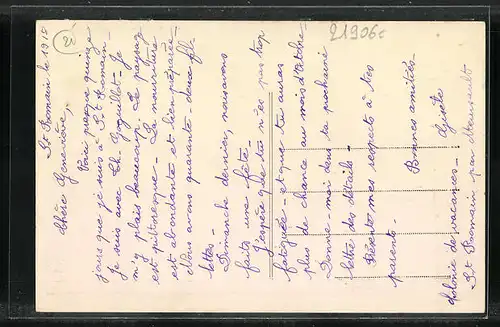 St Romain le 1912
Chère Geneviève,
Voici presque quinze
jours que je suis à St Romain.
Je suis avec Ch. Je
m'y plais beaucoup. Le paysage
est pittoresque — La nourriture
est abondante et bien préparée —
Nous avons quarante-deux fil-
lettes —
Dimanche dernier, nous avons
fait une fête —
J'espère que tu n'es pas trop
fatiguée — et que tu auras
plus de chance au mois d'Octobre
Donne-moi dans ta prochaine
lettre des détails —
Présente mes respects à tes
parents —
Bonnes amitiés —
Gisèle
Colonie de vacances —
St Romain par Meursault
21906c
20